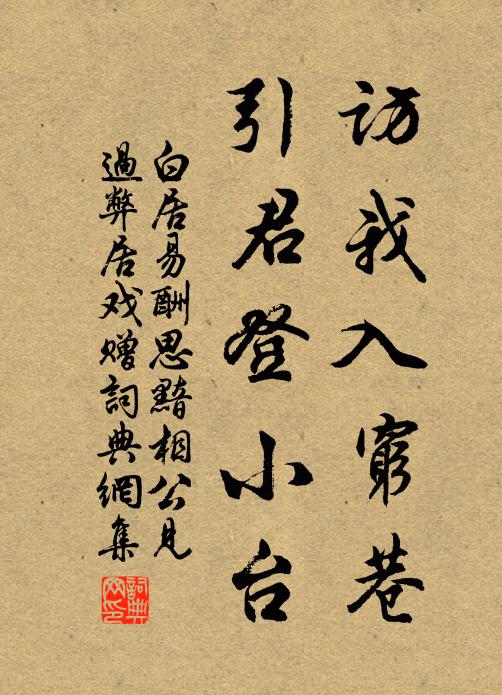 访我入窮巷
引君登小台
白居易酬思黯相公見
過弊居戏赠詞典網集
詞典
网印